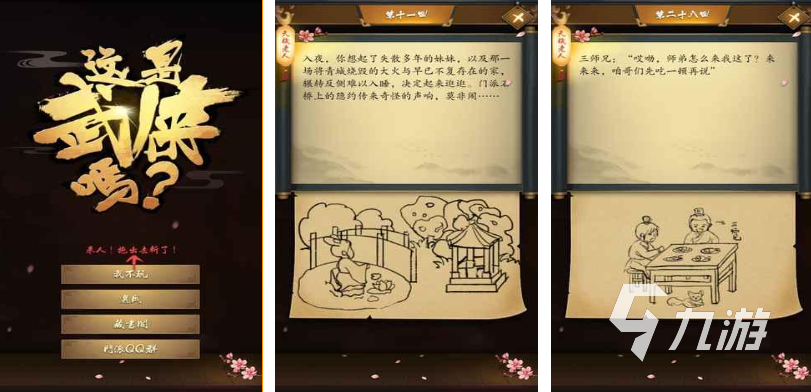 这是
武侠
吗？
来人！拖出去斩了！
我不玩
离线
藏书阁
门派QQ群
第十一回
天机老人
入夜，你想起了失散多年的妹妹，以及那一
场将青城烧毁的大火与早已不复存在的家，
辗转反侧难以入睡，决定起来逛逛。门派水
桥上的隐约传来奇怪的声响，莫非闹……
第二十八回
天机老人
三师兄：“哎呦，师弟怎么来我这了？来
来来，咱哥们先吃一顿再说”
三师兄
九游